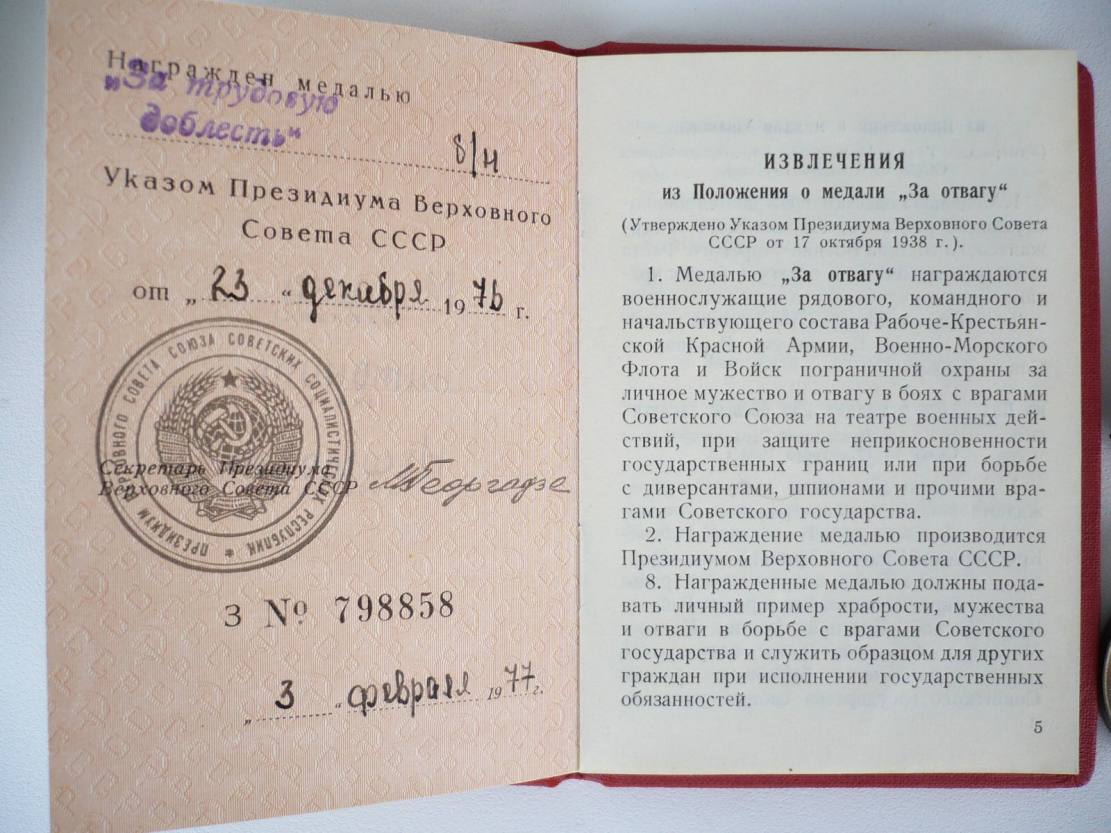 Награжден медалью
„За трудовую
доблесть“
б/н
Указом Президиума Верховного
Совета СССР
от „23“ декабря 1976 г.
ПРЕЗИДИУМ ВЕРХОВНОГО СОВЕТА СОЮЗА СОВЕТСКИХ СОЦИАЛИСТИЧЕСКИХ РЕСПУБЛИК
Секретарь Президиума
Верховного Совета СССР МГеоргадзе
З № 798858
„3“ февраля 1977 г.
ИЗВЛЕЧЕНИЯ
из Положения о медали „За отвагу“
(Утверждено Указом Президиума Верховного Совета
СССР от 17 октября 1938 г.).
1. Медалью „За отвагу“ награждаются
военнослужащие рядового, командного и
начальствующего состава Рабоче-Крестьян-
ской Красной Армии, Военно-Морского
Флота и Войск пограничной охраны за
личное мужество и отвагу в боях с врагами
Советского Союза на театре военных дей-
ствий, при защите неприкосновенности
государственных границ или при борьбе
с диверсантами, шпионами и прочими вра-
гами Советского государства.
2. Награждение медалью производится
Президиумом Верховного Совета СССР.
8. Награжденные медалью должны пода-
вать личный пример храбрости, мужества
и отваги в борьбе с врагами Советского
государства и служить образцом для других
граждан при исполнении государственных
обязанностей.
5